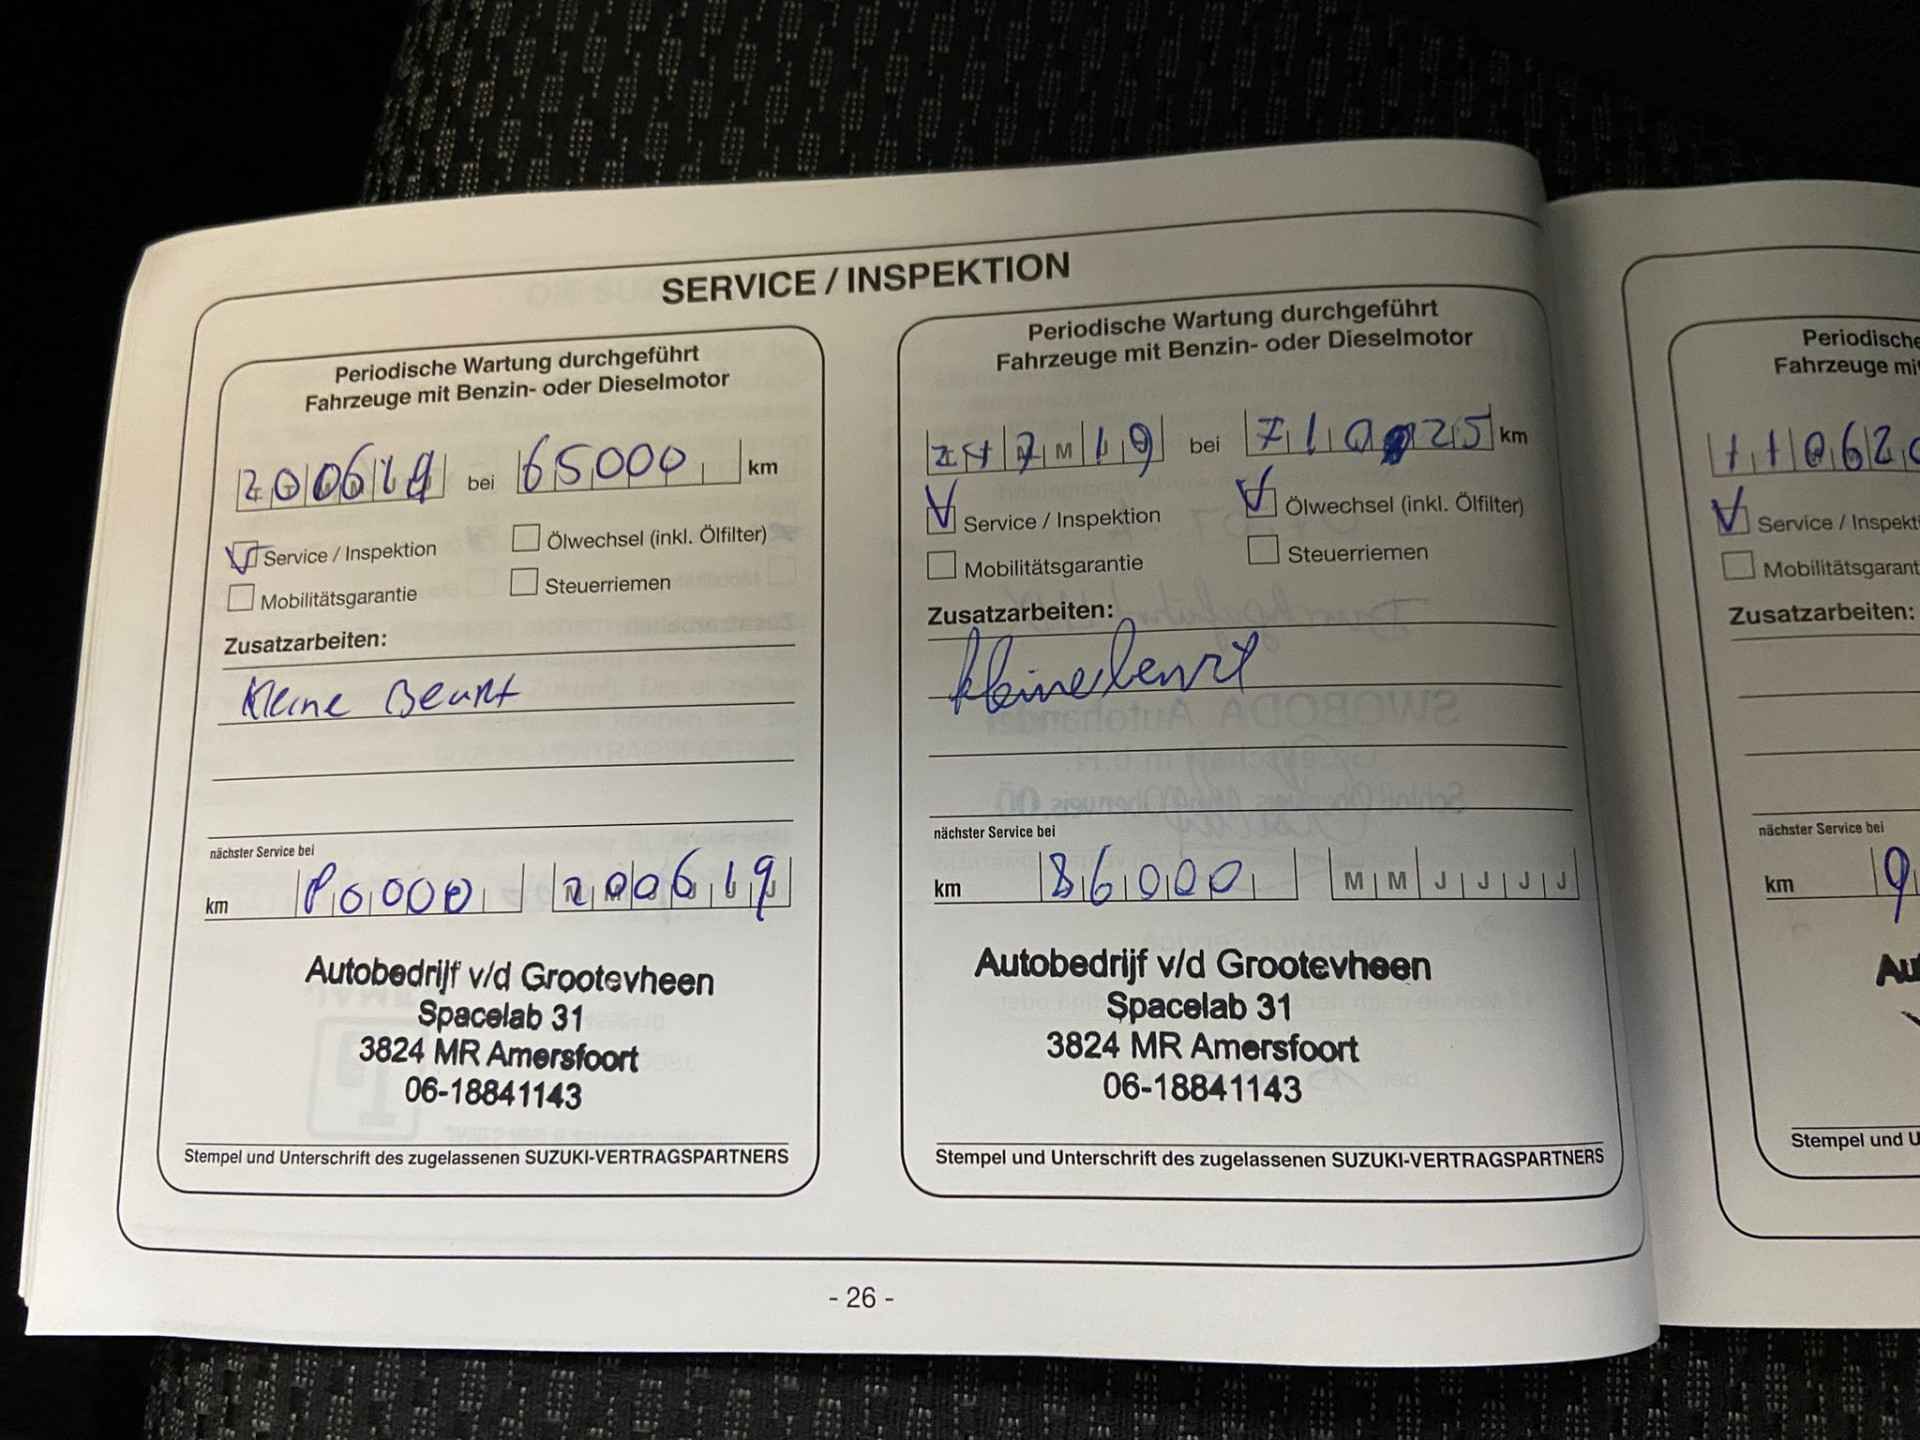 SERVICE / INSPEKTION
Periodische Wartung durchgeführt
Fahrzeuge mit Benzin- oder Dieselmotor
200619 bei 65000 km
Service / Inspektion
Ölwechsel (inkl. Ölfilter)
Mobilitätsgarantie
Steuerriemen
Zusatzarbeiten:
Kleine Beurt
nächster Service bei
km 80000 200619
Autobedrijf v/d Grootevheen
Spacelab 31
3824 MR Amersfoort
06-18841143
Stempel und Unterschrift des zugelassenen SUZUKI-VERTRAGSPARTNERS
Periodische Wartung durchgeführt
Fahrzeuge mit Benzin- oder Dieselmotor
bei km
Service / Inspektion
Ölwechsel (inkl. Ölfilter)
Mobilitätsgarantie
Steuerriemen
Zusatzarbeiten:
kleine beurt
nächster Service bei
km 86000 M M J J J J
Autobedrijf v/d Grootevheen
Spacelab 31
3824 MR Amersfoort
06-18841143
Stempel und Unterschrift des zugelassenen SUZUKI-VERTRAGSPARTNERS
- 26 -
Periodische
Fahrzeuge mi
Service / Inspekt
Mobilitätsgarant
Zusatzarbeiten:
nächster Service bei
km 9
Au
Stempel und U